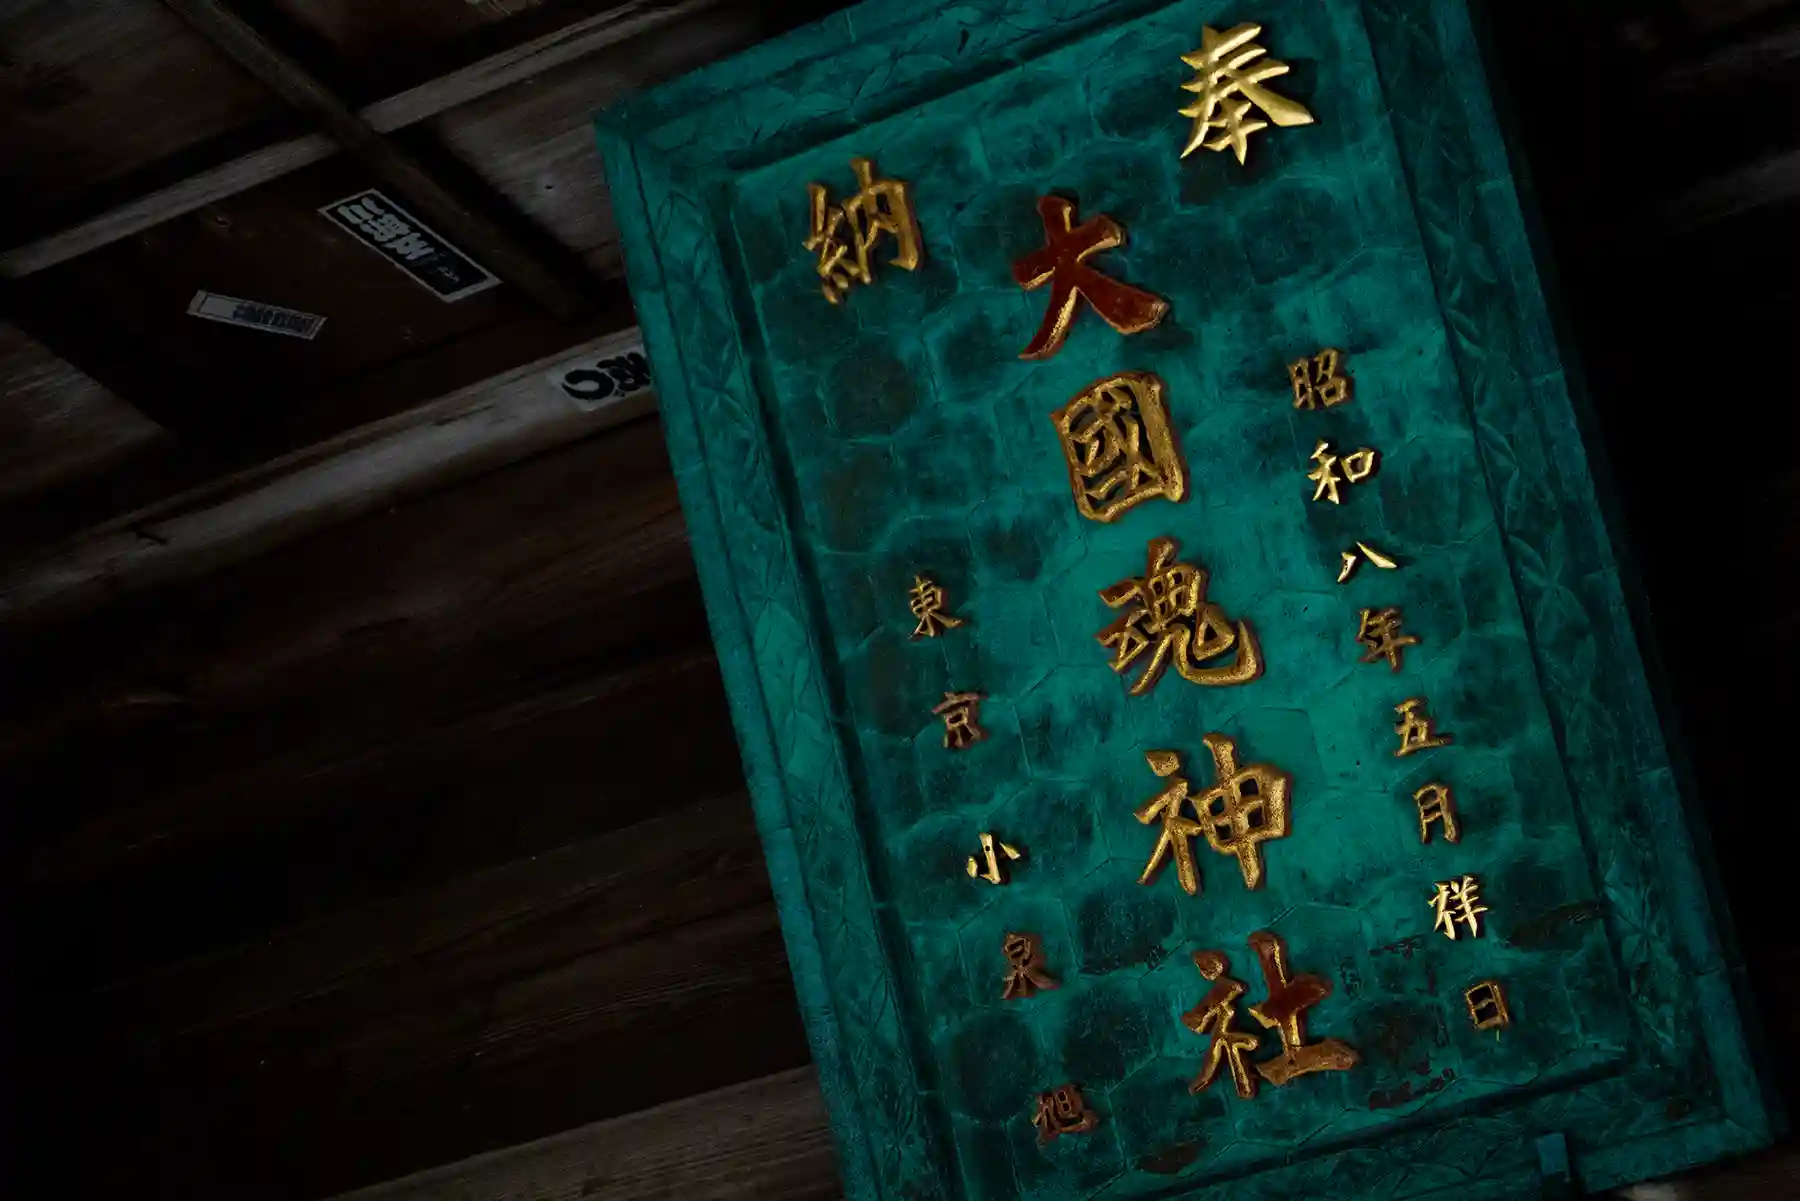 奉納
昭和八年五月祥日
大國魂神社
東京 小泉旭